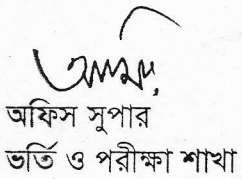 অফিস সুপার
ভর্তি ও পরীক্ষা শাখা